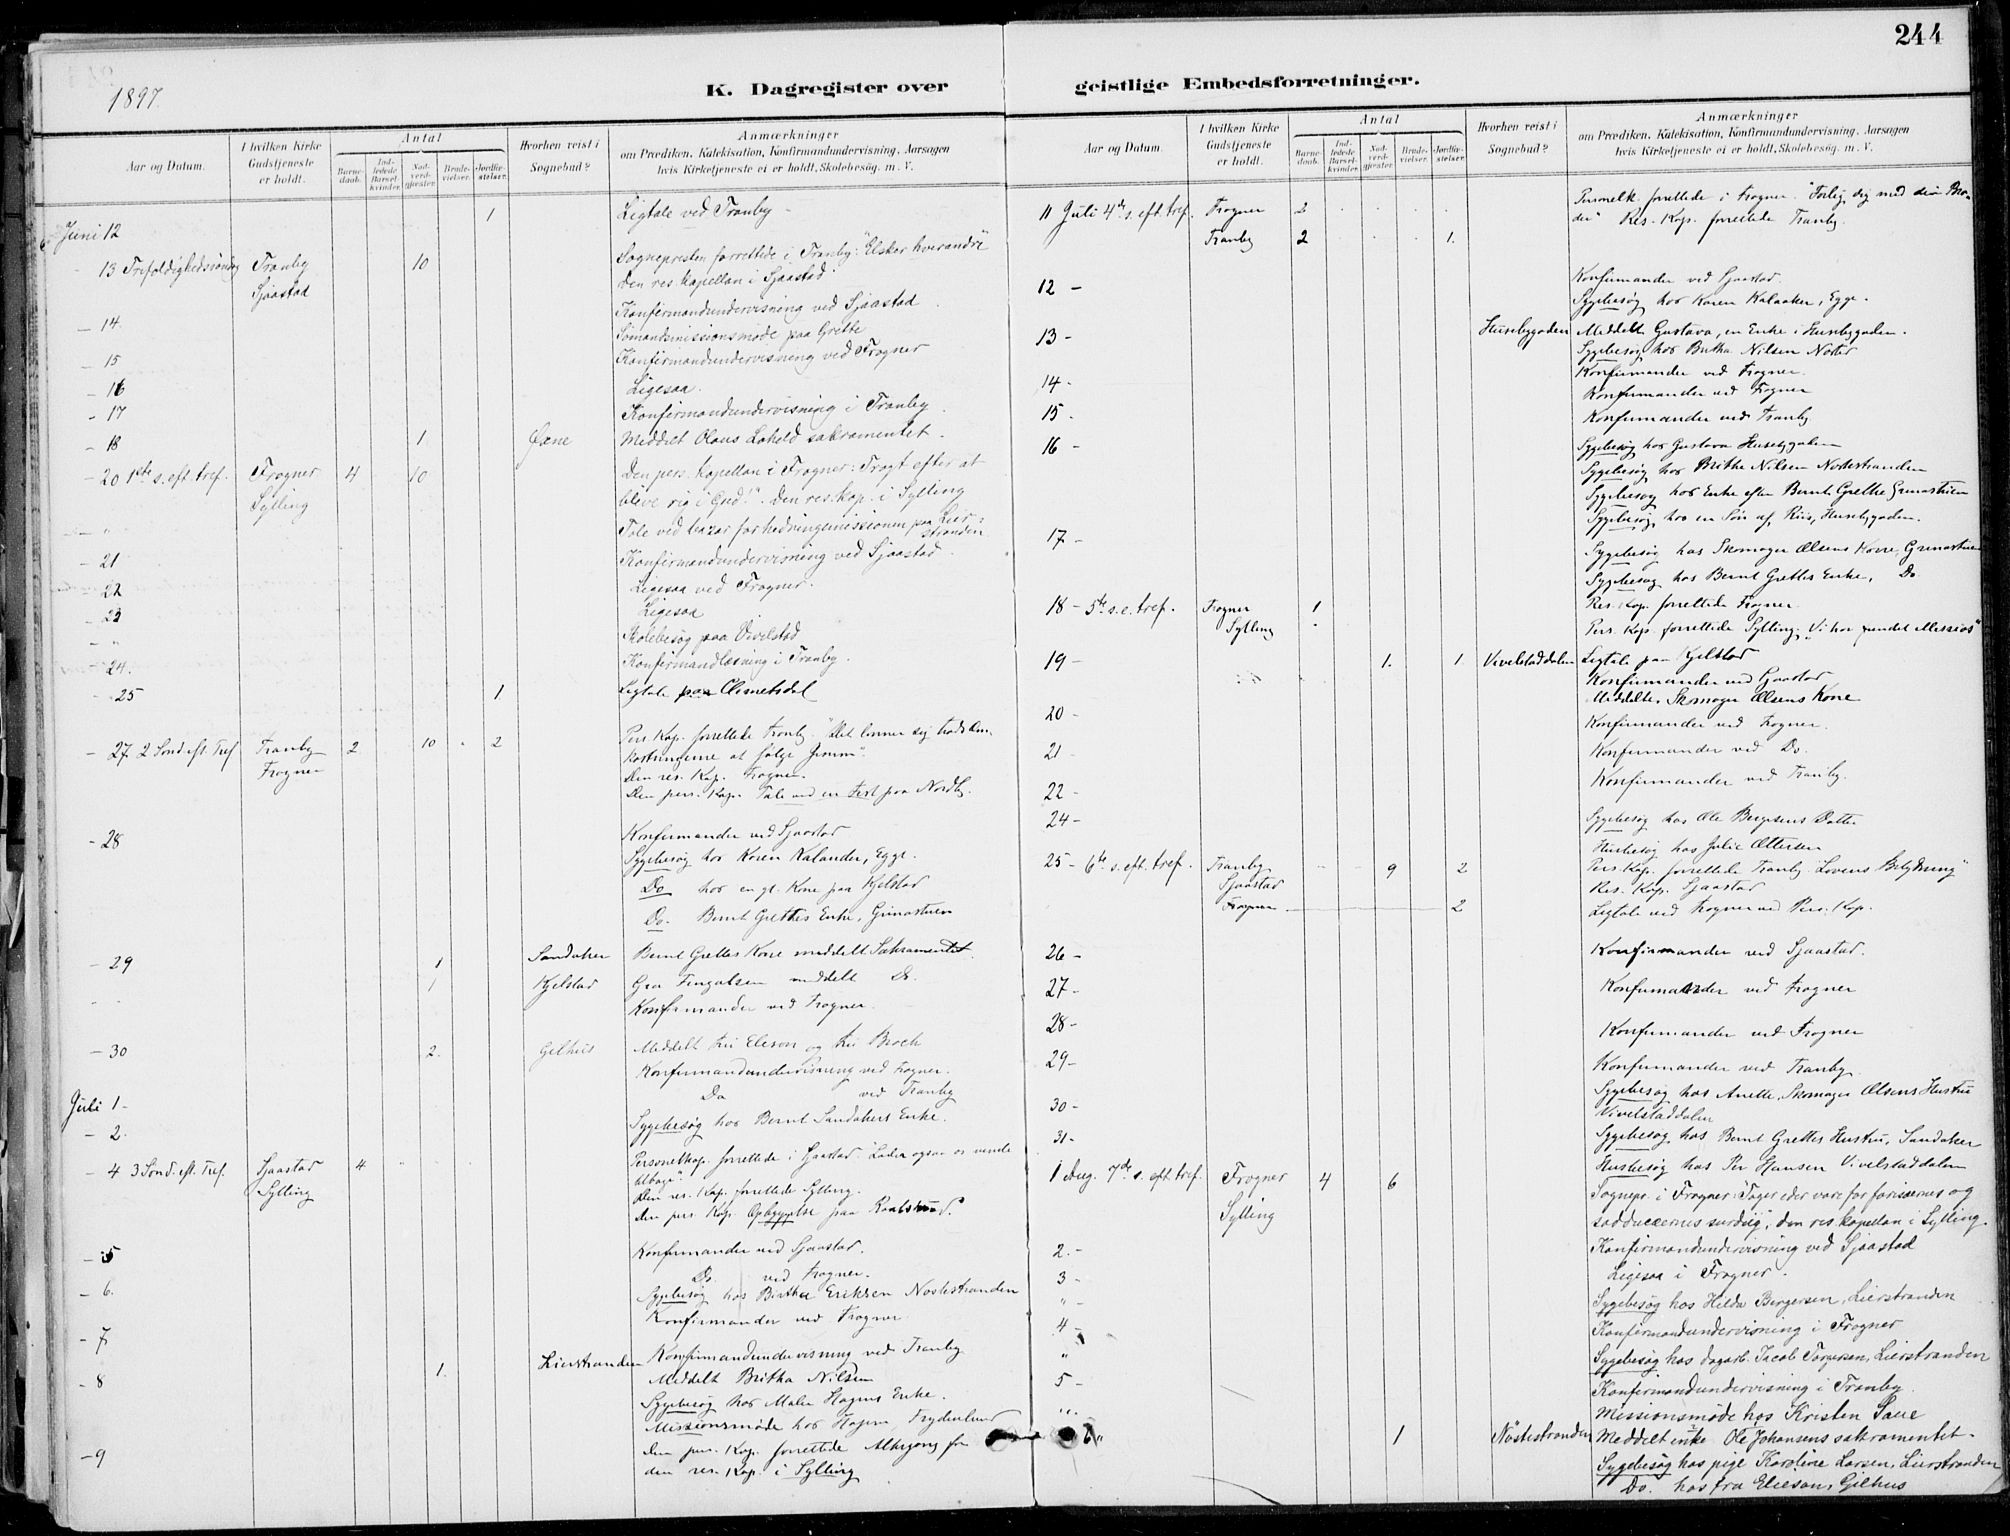 244
1897.
K. Dagregister over geistlige Embedsforretninger.
Aar og Datum.
I hvilken Kirke Gudstjeneste er holdt.
Antal
Barnedaab.
Indledede Barselkvinder.
Nadverdgjester.
Brudevielser.
Jordfæstelser.
Hvorhen reist i Sognebud?
Anmærkninger
om Prædiken, Katekisation, Konfirmandundervisning, Aarsagen
hvis Kirketjeneste ei er holdt, Skolebesög. m. V.
Juni 12 1 Ligtale ved Tranby -
13 Trefoldighedssöndag Tranby 10 Sognepresten forrettede i Tranby: "Elsker hverandre"
Sjaastad den res. kapellan i Sjaastad
- 14. Konfirmandundervisning ved Sjaastad.
Sömandsmissionsmöde paa Grette
- 15 Konfirmandundervisning ved Frogner
- 16 Ligesaa.
- 17 Konfirmandundervisning i Tranby.
- 18 1 Meddelt Olaus sakramentet.
- 20 1ste s. eft. tref. Frogner 4 10 Den pers. kapellan i Frogner: Tragt efter at
Sylling blive rig i Gud!". Den res. kap. i Sylling
" Tale ved bazar for hedningemissionen paa Lierstranden
- 21 Konfirmandundervisning ved Sjaastad.
- 22 Ligesaa ved Frogner.
- 23 Ligesaa
" Skolebesög paa Vivelstad
- 24. Konfirmandlæsning i Tranby.
- 25 1 Ligtale paa
- 27. 2 Sönd. eft. Tref. Tranby 2 10 2 Pers. Kap. forrettede Tranby. "Det lönner sig trods Omkostningerne at følge
Frogner Den res. Kap. Frogner.
Den pers. Kap. Tale ved en Fest paa Nordby.
- 28 Konfirmander ved Sjaastad
Sygebesög hos Karen Kalander, Egge.
Do hos en gl. Kone paa Kjelstad
Do. Bernt Grettes Enke, Grinastuen
- 29 1 Sandaker Bernt Grettes Kone meddelt Sakramentet.
1 Kjelstad meddelt Do.
Konfirmander ved Frogner.
- 30 2. Gilhus Meddelt Eleson og Broch
Konfirmandundervisning ved Frogner.
Juli 1 - Do ved Tranby
- 2. Sygebesög hos Bernt Sandakers Enke.
- 4 3 Sönd. eft. Tref. Sjaastad 4 Personelkap. forrettede i Sjaastad. "Lader ogsaa os vende tilbage"
Sylling Den res. Kap. forrettede Sylling.
Den pers. Kap. Opbyggelse paa
- 5 Konfirmander ved Sjaastad.
- 6. Do. ved Frogner.
Sygebesög hos Birthe Eriksen Nøstestranden
- 7 Konfirmander ved Frogner
- 8 1. Lierstranden Konfirmandundervisning ved Tranby
Meddelt Britha Nilsen
Sygebesög hos Maler Hagens Enke.
Missionsmöde hos Hagen Frydenlund
- 9 Den pers. Kap. forrettede Altergang for
den res. Kap. i Sylling
Aar og Datum.
I hvilken Kirke Gudstjeneste er holdt.
Antal
Barnedaab.
Indledede Barselkvinder.
Nadverdgjester.
Brudevielser.
Jordfæstelser.
Hvorhen reist i Sognebud?
Anmærkninger
om Prædiken, Katekisation, Konfirmandundervisning, Aarsagen
hvis Kirketjeneste ei er holdt, Skolebesög. m. V.
11 Juli 4de s. eft. tref. Frogner 2 Personelk. forrettede i Frogner. "Forlig dig med din Broder"
Tranby 2 1. Res. Kap. forrettede Tranby.
12 - Konfirmander ved Sjaastad.
Sygebesög hos Karen Kalander, Egge.
13 - Husebygaden Meddelt Gustava, en Enke i Husebygaden.
Sygebesög hos Britha Nilsen Nøste
Konfirmander ved Frogner.
14 - Konfirmander ved Frogner
15 - Konfirmander ved Tranby
16 - Sygebesög hos Gustava Husebygaden
Sygebesög hos Brithe Nilsen Nøstestranden
Sygebesög hos Enke efter Bernt Grethe Grinastuen
Sygebesög hos en Sön af Riis, Husebygaden.
17 - Sygebesög hos Skomager Olsens Kone, Grinastuen
Sygebesög hos Bernt Grettes Enke, Do
18 - 5te s. e. tref. Frogner 1 Res. Kap. forrettede Frogner.
Sylling Pers. Kap. forrettede Sylling. "Vi har fundet Messias"
19 - 1. 1 Vivelstaddalen Ligtale paa Kjelstad
Konfirmander ved Sjaastad
Meddelte Skomager Olsens Kone
20 - Konfirmander ved Frogner.
21 - Konfirmander ved Do.
22 - Konfirmander ved Tranby.
24 - Sygebesög hos Ole Bergesens Datter
Husbesög hos Julie Ottersen
25 - 6te s. eft. tref. Tranby 9 2 Pers. Kap. forrettede Tranby. "Lovens Betydning"
Sjaastad Res. Kap. Sjaastad
Frogner 2 Ligtale ved Frogner ved Pers. Kap.
26 - Konfirmander ved Sjaastad.
27 - Konfirmander ved Frogner
28 - Konfirmander ved Frogner
29 - Konfirmander ved Tranby
30 - Sygebesög hos Anette, Skomager Olsens Hustru
Vivelstaddalen
31 - Sygebesög hos Bernt Grettes Hustru, Sandaker
Husbesög hos Per Hansen Vivelstaddalen
1 Aug. 7de s. eft. tref. Frogner 4 6 Sognepr. i Frogner: "Tager eder vare for fariseernes og
Sylling sadducæernes surdeig", den res. kapellan i Sylling.
2. - Konfirmandundervisning ved Sjaastad
3 - Ligesaa i Frogner.
" - Sygebesög hos Hilda Bergersen, Lierstranden
4 - Konfirmandundervisning i Frogner
" Sygebesög hos dagarb. Jacob Torgersen, Lierstranden
5 - Konfirmandundervisning i Tranby.
" Missionsmöde hos Kristen Saue
6 " 1 Nöstestranden Meddelt enke Ole Johansens sakramentet -
Sygebesög hos pige Karoline Larsen, Lierstranden
Do. hos fru Elieson, Gilhus